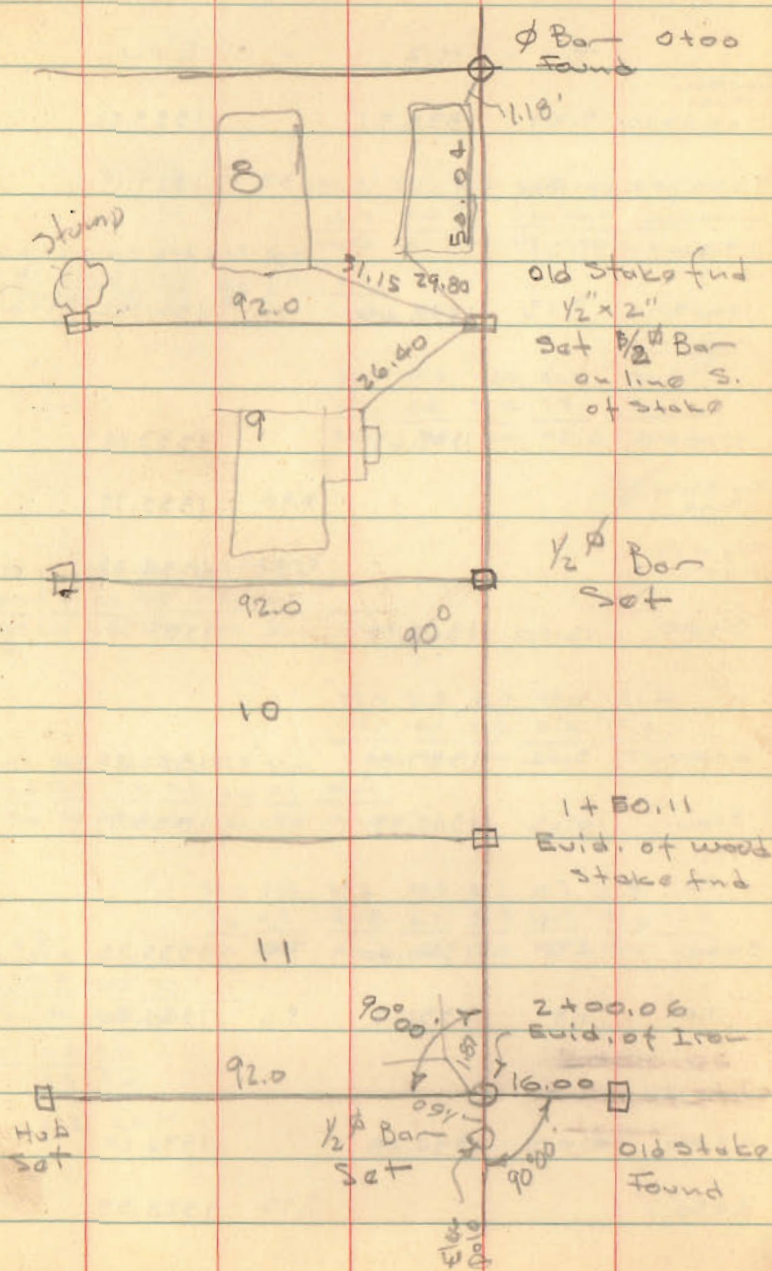 Ø Bar 0+00
Found
1.18'
8
50.04
Stump
31.15 29.80
92.0
Old Stake fnd
1/2" x 2"
Set 1/2 Ø Bar
on line S.
of Stake
26.40
9
1/2 Ø Bar
Set
92.0
90°
10
1+50.11
Evid. of wood
stake fnd
11
90°00'
2+00.06
Evid. of Iron
92.0
16.00
Hub
Set
1/2 Ø Bar
Set
90°00'
Old Stake
Found
Elec
Pole